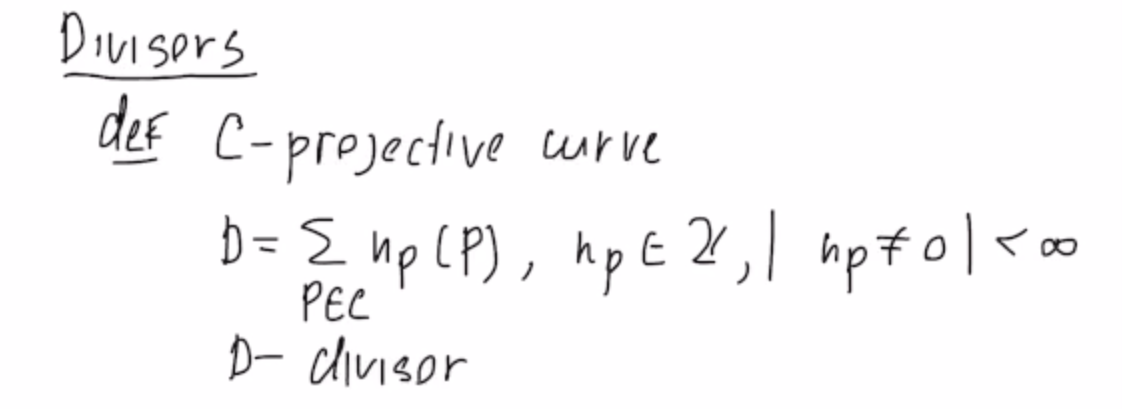 Divisors
def C-projective curve
D = ∑ n_P (P), n_P ∈ ℤ, | n_P ≠ 0 | < ∞
P∈C
D- divisor